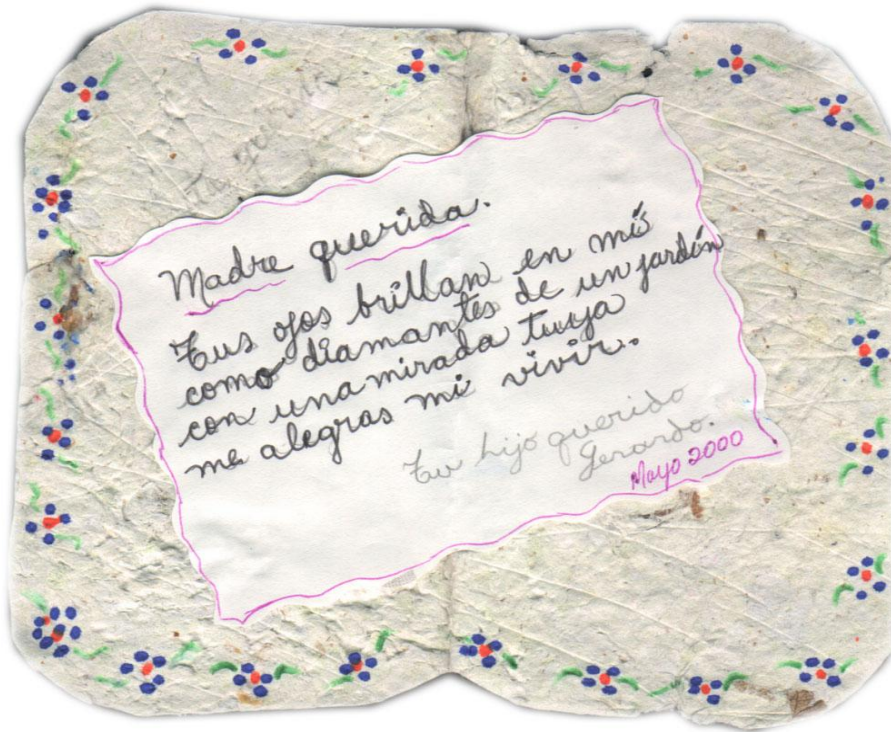 Madre querida.
Tus ojos brillan en mí
como diamantes de un jardín
con una mirada tuya
me alegras mi vivir.
Tu hijo querido
Gerardo.
Mayo 2000